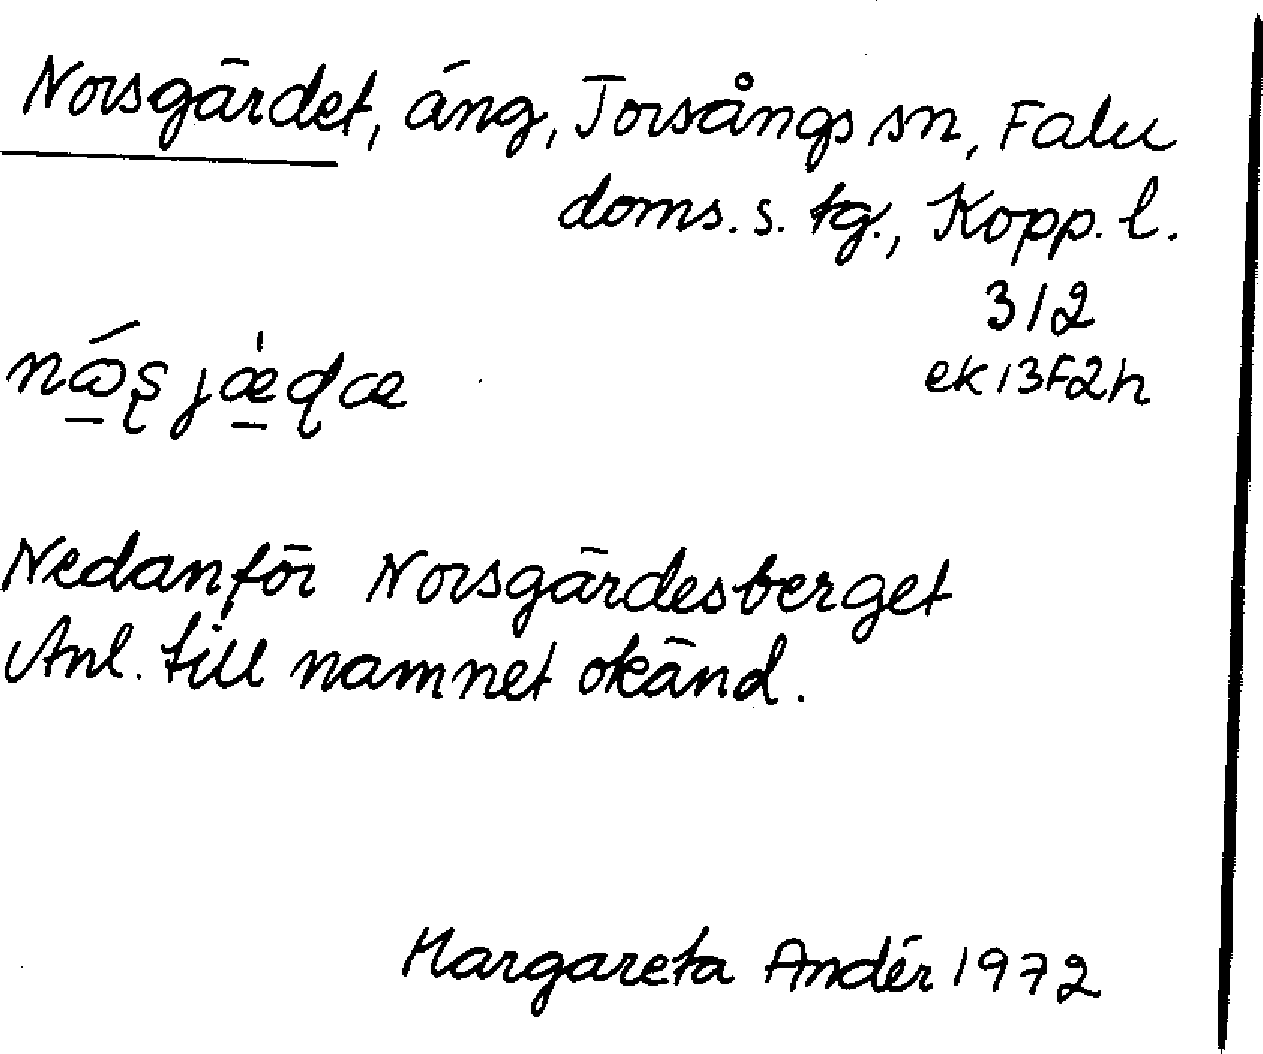 Norsgärdet, äng, Torsångs sn, Falu
doms. s. tg., Kopp. l.
312
ek 13F2h
Nedanför Norsgärdesberget
Anl. till namnet okänd.
Margareta Andér 1972